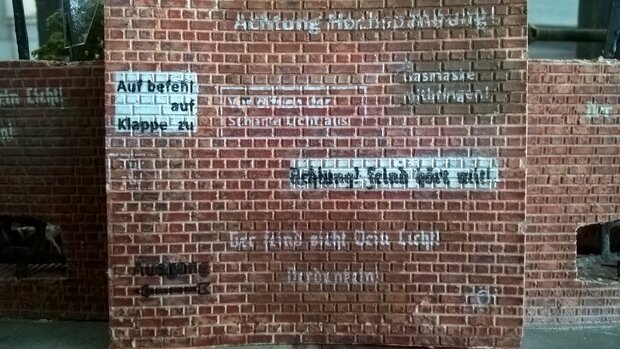 Achtung Hochspannung!
Gasmaske
mitbringen!
Auf befehl
auf
Klappe zu
Vor Öffnen der
Scharte Licht aus
Achtung! Feind hört mit!
Der Feind sieht Dein Licht!
Verdunkeln!
Ausgang
Dein Licht!